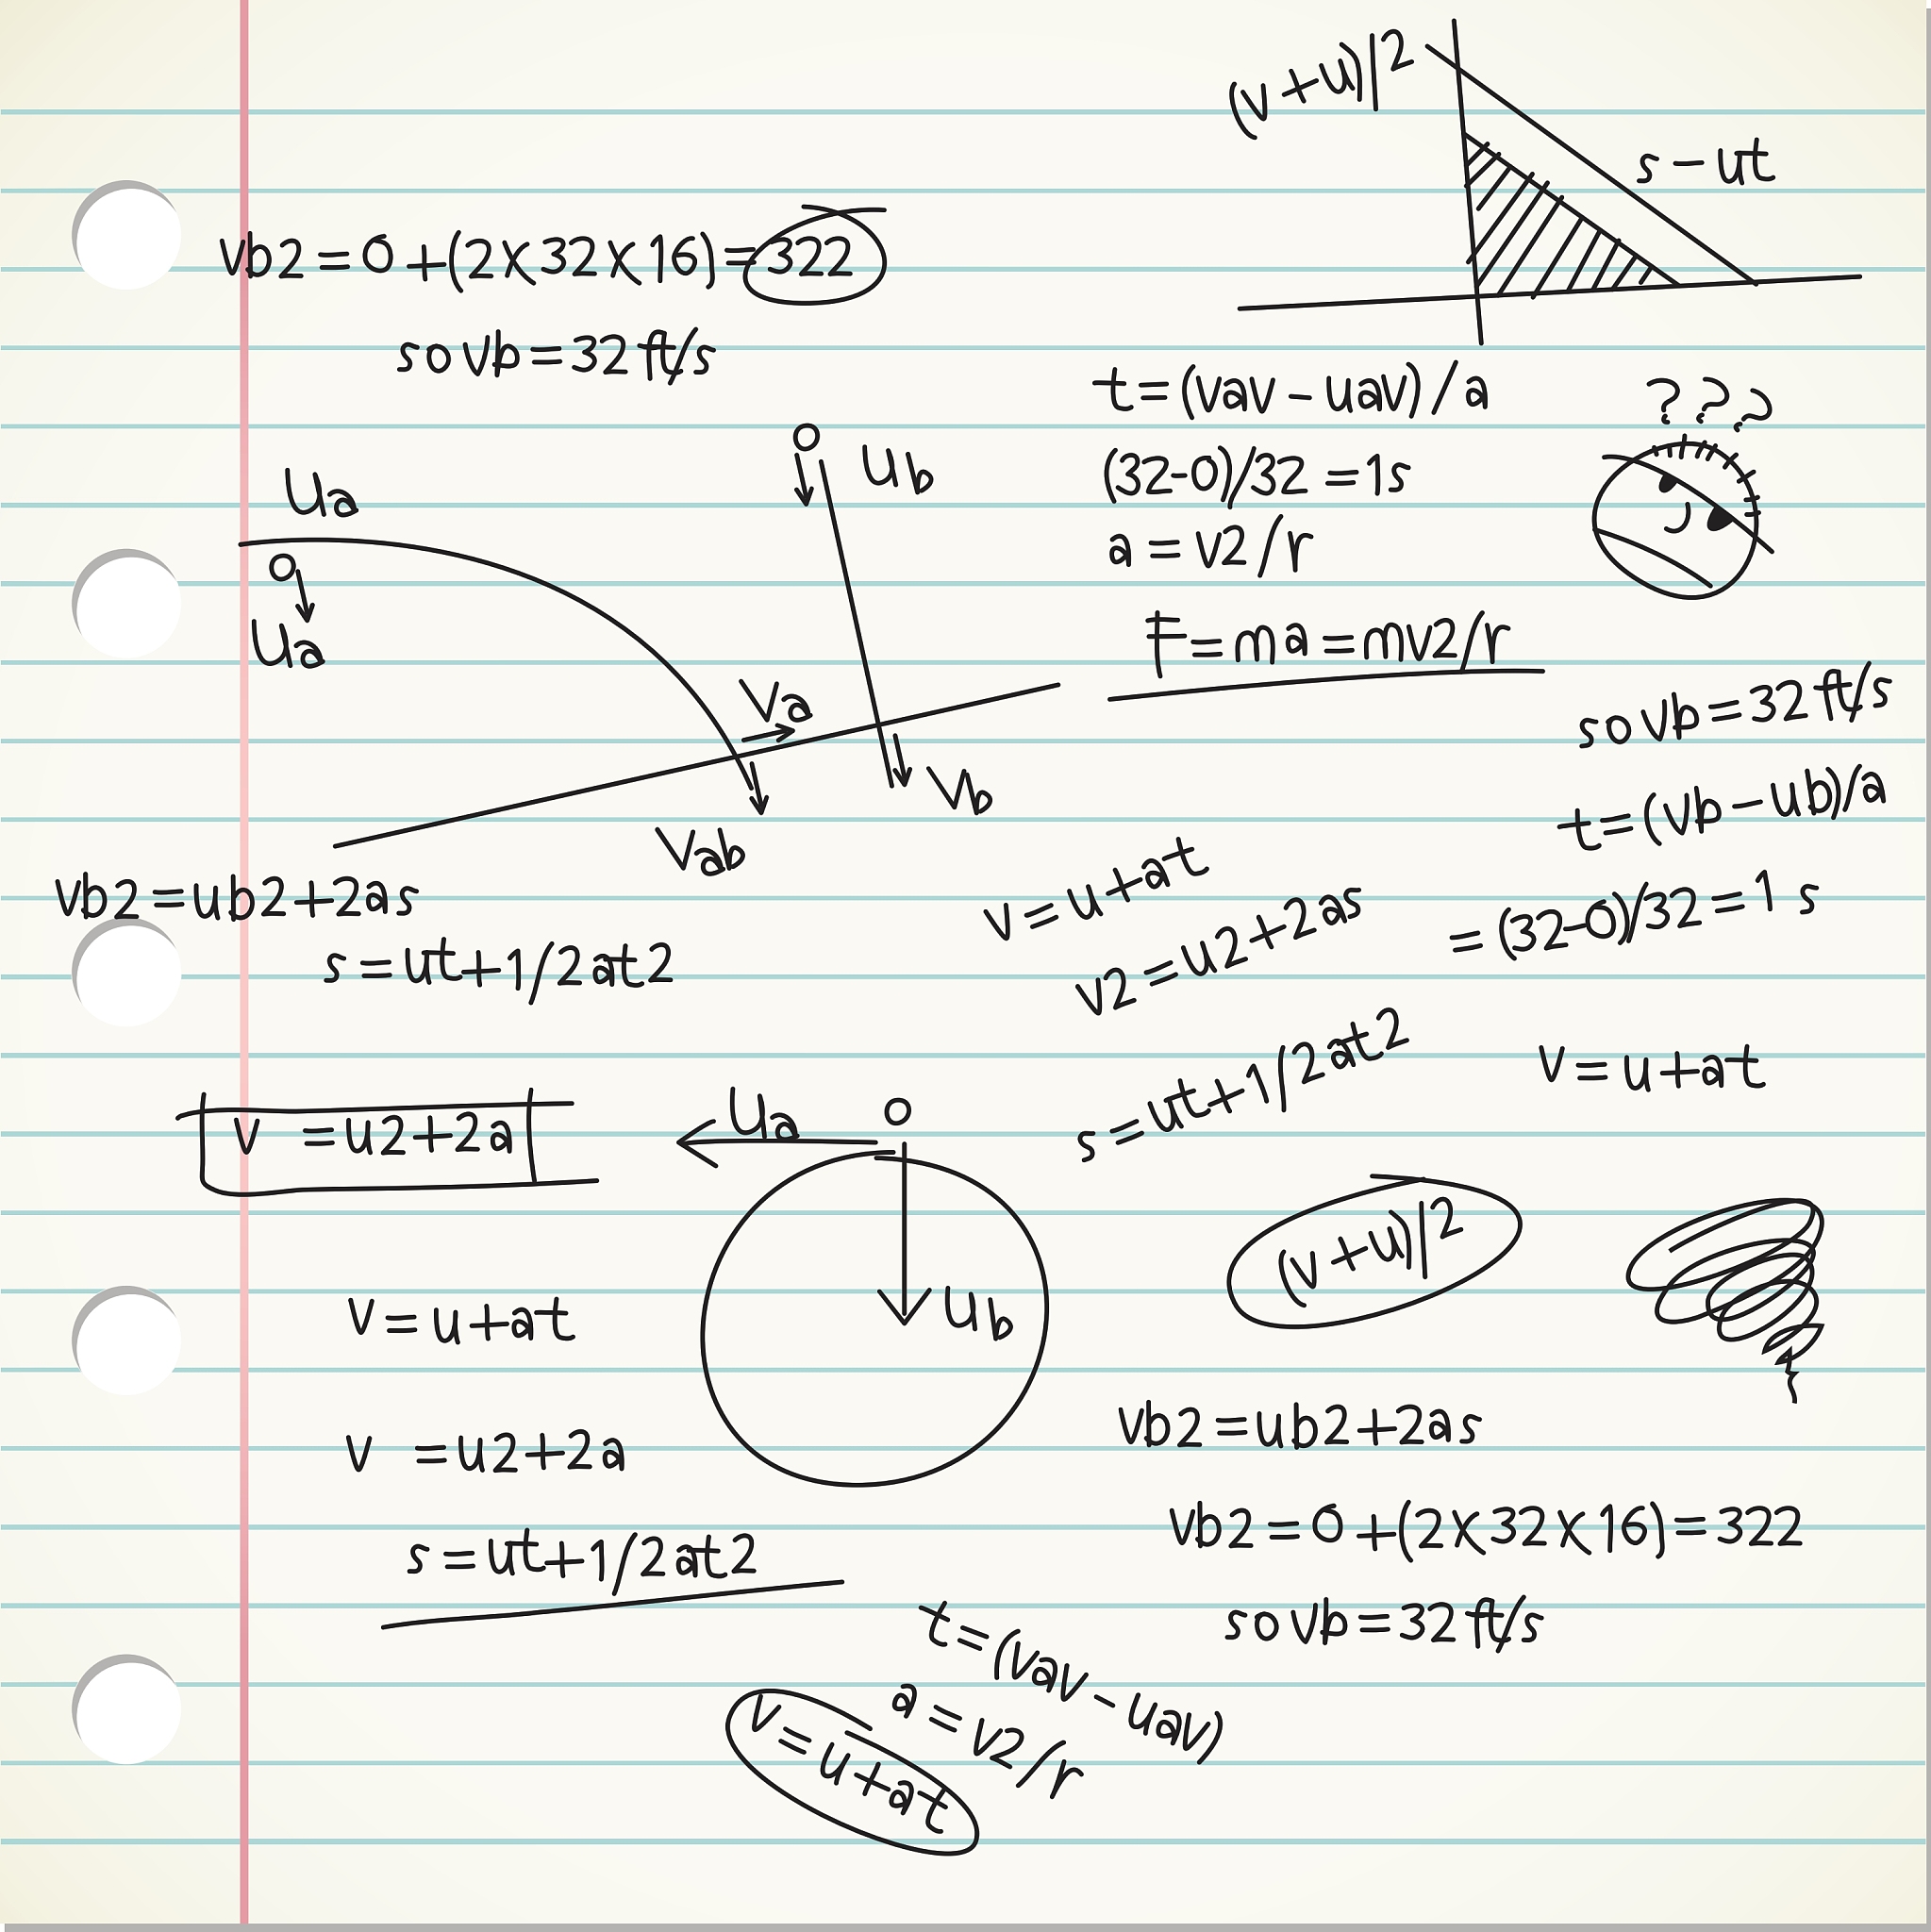 (v+u)|2
s-ut
vb2=0+(2x32x16)=322
so vb=32 ft/s
t=(vav-uav)/a
???
(32-0)/32=1s
a=v2/r
F=ma=mv2/r
Ub
Ua
Ua
Va
Vb
Vab
so vb=32 ft/s
t=(vb-ub)/a
=(32-0)/32=1 s
vb2=ub2+2as
s=ut+1/2at2
v=u+at
v2=u2+2as
s=ut+1/2at2
v=u+at
v =u2+2a
Ua
Ub
(v+u)|2
v=u+at
v =u2+2a
s=ut+1/2at2
vb2=ub2+2as
vb2=0+(2x32x16)=322
so vb=32 ft/s
t=(vav-uav)
a=v2/r
v=u+at